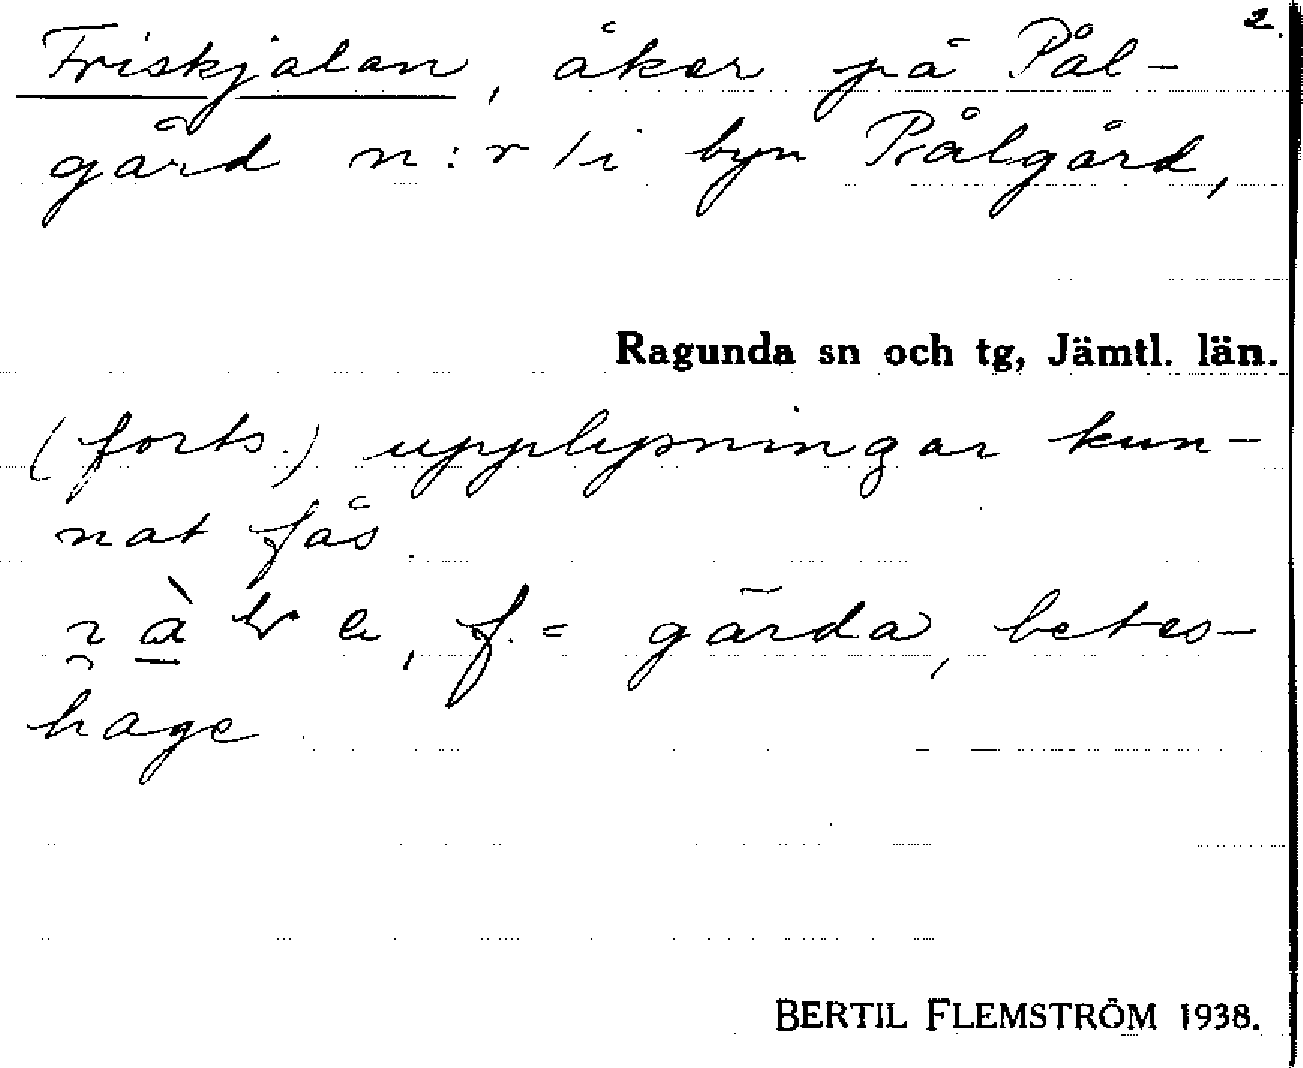 2.
Friskjalan, åker på Pål-
gård n:r 1 i byn Pålgård,
Ragunda sn och tg, Jämtl. län.
(forts.) upplysningar kun-
nat fås.
f. = gärda, betes-
hage
BERTIL FLEMSTRÖM 1938.